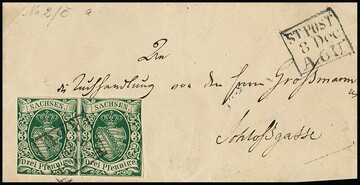 No 2/c a
ST. POST
8 Dec
A 6 U
An
die Tuchhandlung von den Herrn Großmann
Schloßgasse
SACHSEN SACHSEN
3 3 3 3
Drei Pfennige. Drei Pfennige.